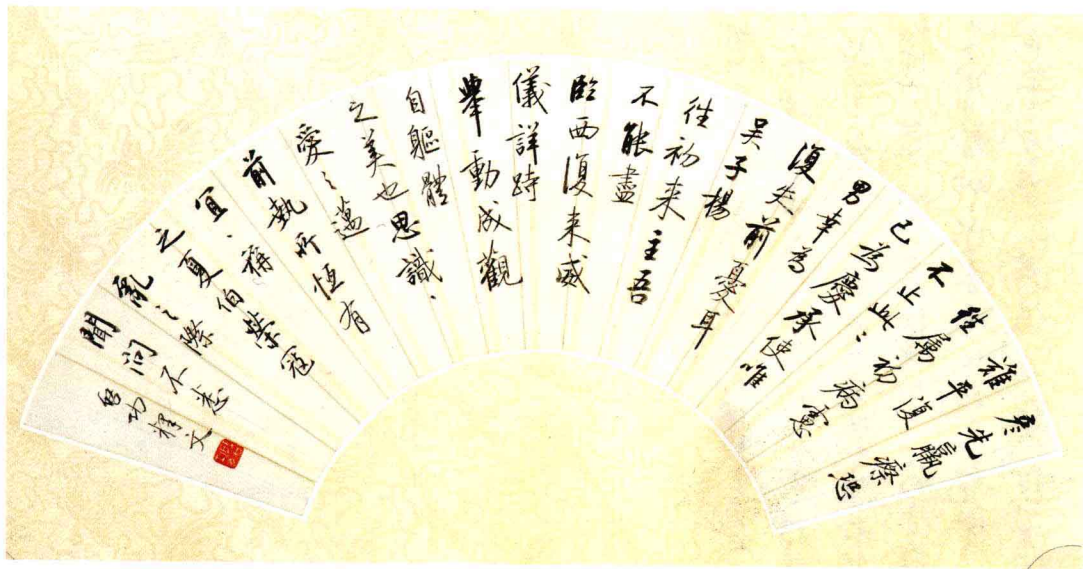 彦先羸瘵恐
難平復
往屬初病慮
不止此〻
已為慶承使唯
男幸為
復失前憂耳
吴子楊
往初来主吾
不能盡
臨西復来威
儀詳跱
舉動成觀
自軀體
之美也思識、
愛之邁
前執所恒有
宜、稱
之夏伯榮寇
亂之際
聞问不悉
启功釋文